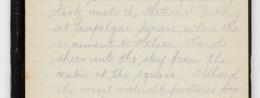 took me to the National Gallery
at Trafalgar Square where the
monument to Nelson stands
sheer into the sky from the
centre of the square.
the most valuable pictures